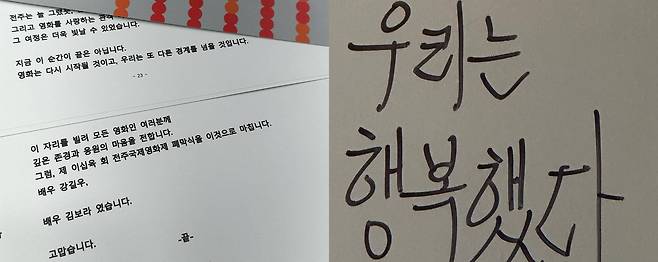 전주는 늘 그랬듯,
그리고 영화를 사랑하는 관객
그 여정은 더욱 빛날 수 있었습니다.
지금 이 순간이 끝은 아닙니다.
영화는 다시 시작될 것이고, 우리는 또 다른 경계를 넘을 것입니다.
- 23 -
이 자리를 빌려 모든 영화인 여러분께
깊은 존경과 응원의 마음을 전합니다.
그럼, 제 이십육 회 전주국제영화제 폐막식을 이것으로 마칩니다.
배우 강길우,
배우 김보라 였습니다.
고맙습니다. -끝-
우리는
행복했다